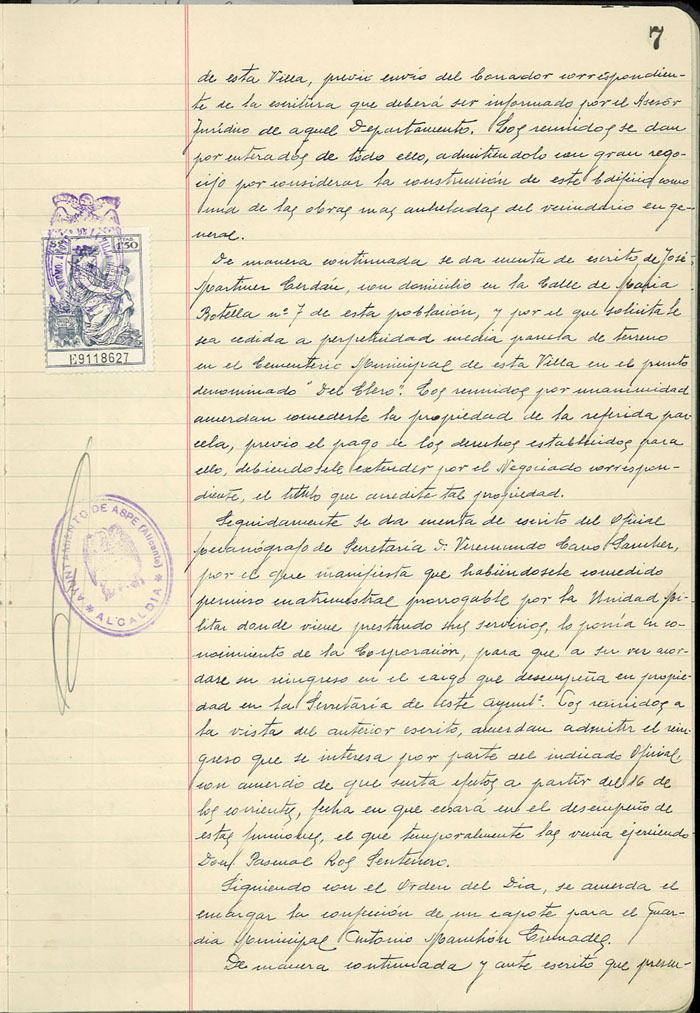 7
de esta Villa, previo envío del Borrador correspondien-
te de la escritura que deberá ser informado por el Asesor
Jurídico de aquel Departamento. Los reunidos se dan
por enterados de todo ello, admitiéndolo con gran rego-
cijo por considerar la construcción de este Edificio como
una de las obras mas anheladas del vecindario en ge-
neral.
De manera continuada se da cuenta de escrito de José
Martinez Cerdán, con domicilio en la Calle de Maria
Botella nº 7 de esta población, y por el que solicita le
sea cedida a perpetuidad media parcela de terreno
en el Cementerio Municipal de esta Villa en el punto
denominado "Del Clero". Los reunidos por unanimidad
acuerdan concederle la propiedad de la referida par-
cela, previo el pago de los derechos establecidos para
ello, debiendosele extender por el Negociado correspon-
diente, el título que acredite tal propiedad.
Seguidamente se da cuenta de escrito del Oficial
mecanógrafo de Secretaría D. Veremundo Cano Sanchez,
por el que manifiesta que habiéndosele concedido
permiso cuatrimestral prorrogable por la Unidad Mi-
litar donde viene prestando sus servicios, lo ponía en co-
nocimiento de la Corporación, para que a su vez acor-
dase su reingreso en el cargo que desempeña en propie-
dad en la Secretaría de este Ayuntº. Los reunidos a
la vista del anterior escrito, acuerdan admitir el rein-
greso que se interesa por parte del indicado Oficial,
con acuerdo de que surta efectos a partir del 16 de
los corrientes, fecha en que cesará en el desempeño de
estas funciones, el que temporalmente las venia ejerciendo
Don Pascual Ros
Siguiendo con el Orden del Dia, se acuerda el
encargar la confección de un capote para el Guar-
dia Municipal Antonio Manchón Cremades.
De manera continuada y ante escrito que presen-
PTAS.
1'50
E9118627
AYUNTAMIENTO DE ASPE (Alicante)
* ALCALDIA *